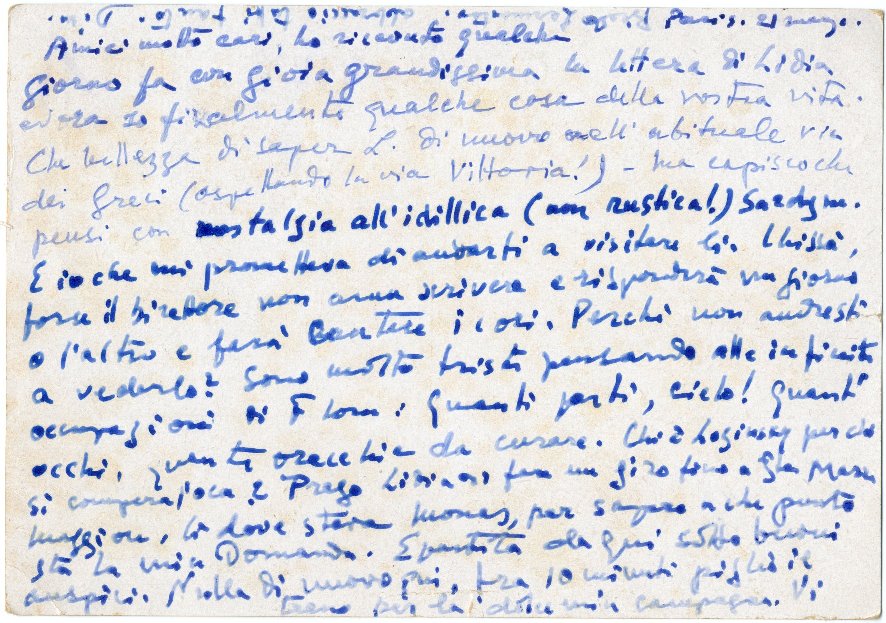 Paris. 21 marzo.
Amici molto cari, ho ricevuto qualche
giorno fa con gioia grandissima la lettera di Lidia
finalmente qualche cosa della vostra vita.
Che bellezza di saper L. di nuovo nell'abituale via
dei Greci (aspettando la via Vittoria!) - Ma capisco che
pensi con nostalgia all'idillica (non rustica!) Sardegn.
E io che mi promettevo di andarti a visitare lì. Chissà,
forse il Direttore non ama scrivere e risponderà un giorno
o l'altro e farà cantare i cori. Perchè non andresti
a vederlo? Sono molto triste pensando alle infinite
occupazioni di Quanti parti, cielo! Quanti
occhi, quante orecchie da curare. Chi è per cui
si compera Prego Lidia fare un giro fino a Sta Maria
Maggiore, lì dove stava per sapere a che punto
sta la mia Domanda. E partita da qui sotto buoni
auspici. Nulla di nuovo qui, tra 10 minuti piglio il
treno per la mia campagna. Vi